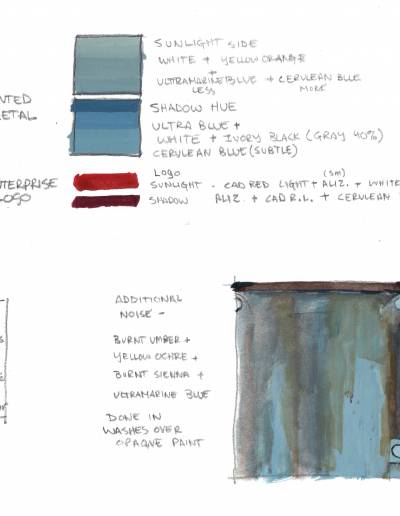 SUNLIGHT SIDE
WHITE + YELLOW ORANGE
+
ULTRAMARINE BLUE + CERULEAN BLUE
LESS MORE
NTED
ETAL
SHADOW HUE
ULTRA BLUE +
WHITE + IVORY BLACK (GRAY 40%)
CERULEAN BLUE (SUBTLE)
NTERPRISE
LOGO
LOGO
(SM)
SUNLIGHT - CAD RED LIGHT + ALIZ. + WHITE
SHADOW ALIZ. + CAD R.L. + CERULEAN
ADDITIONAL
NOISE -
BURNT UMBER +
YELLOW OCHRE +
BURNT SIENNA +
ULTRAMARINE BLUE
DONE IN
WASHES OVER
OPAQUE PAINT